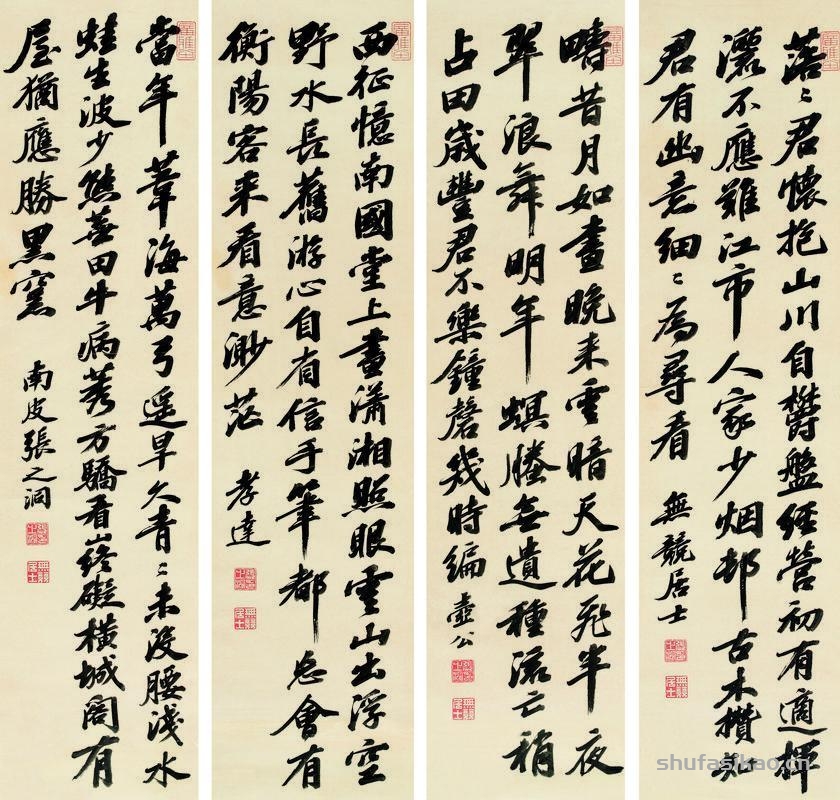 落〻君懷抱山川自欝盤經營初有適揮
灑不應難江市人家少烟邨古木攢知
君有幽意細〻為尋看 無競居士
疇昔月如晝晚来雲暗天花飛半夜
翠浪舞明年螟螣無遺種流亡稍
占田歲豐君不樂鐘磬幾時編 壺公
西征憶南國堂上畫瀟湘照眼雲山出浮空
野水長舊游心自省信手筆都忘會有
衡陽客来看意渺茫 孝達
當年葦海萬弓遥旱久青〻未没腰淺水
蛙生波少態菑田牛病莠方驕看山終礙橫城閣有
屋猶應勝黑窯 南皮張之洞
shufasikao.cn